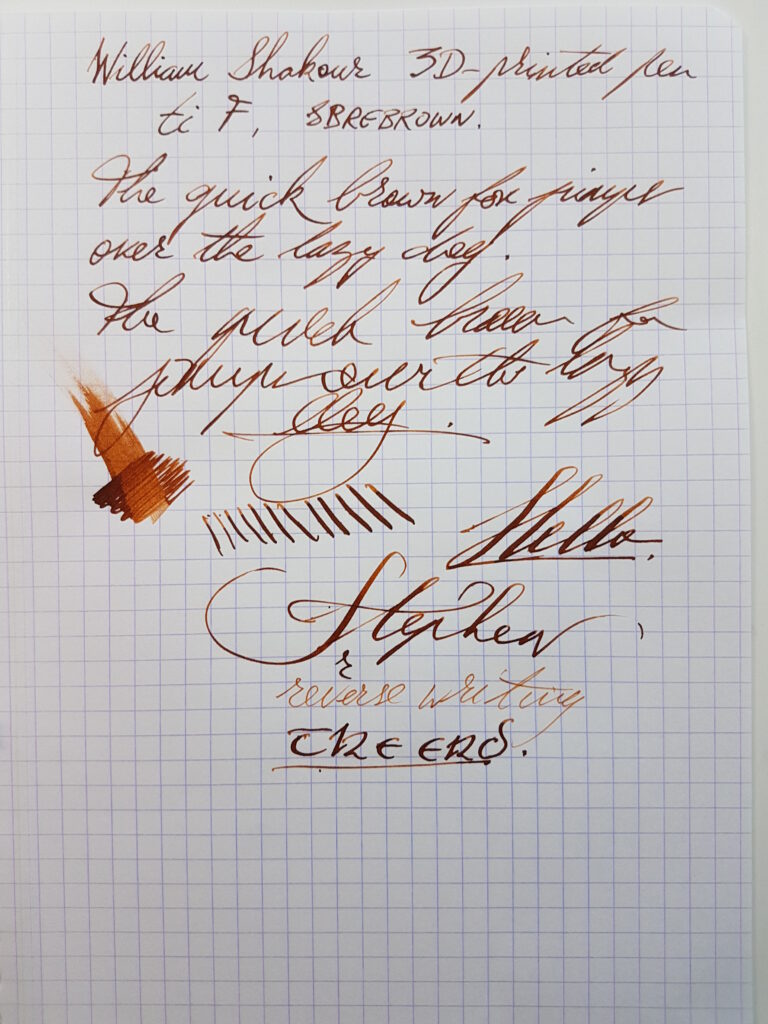 William Shakour 3D-printed pen
ti F, SBREBROWN.
The quick brown fox jumps
over the lazy dog.
The quick brown fox
jumps over the lazy
dog.
Hello.
Stephen
reverse writing
THE END.